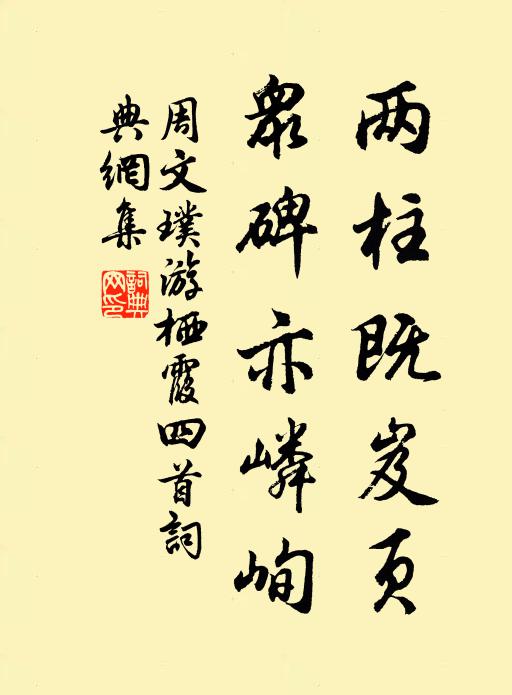 两柱既岌页
眾碑亦嶙峋
周文璞游栖霞四首詞
典網集
詞典
网印